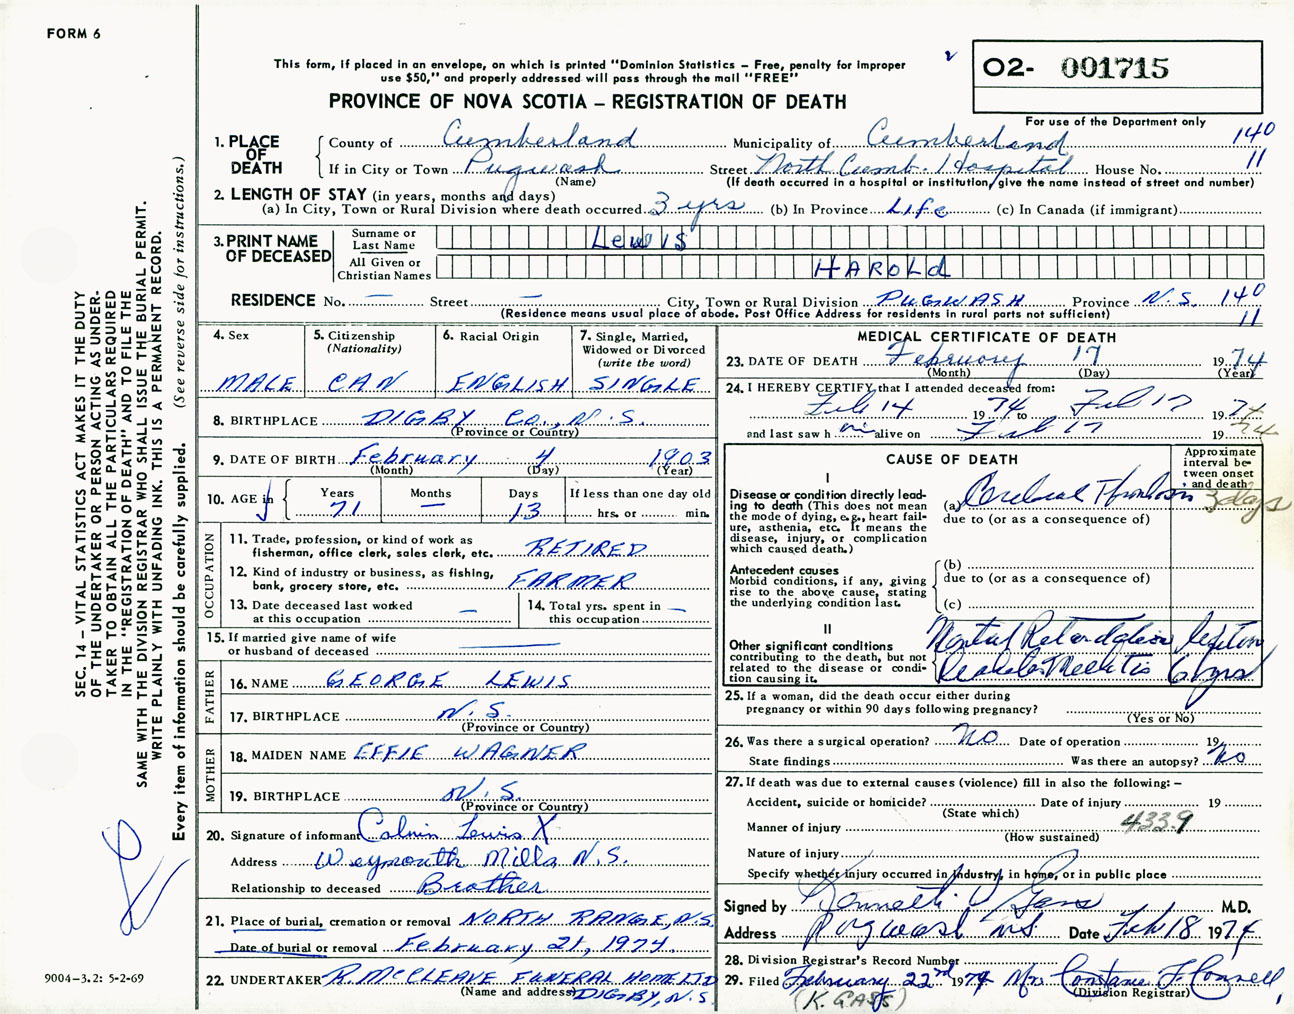 FORM 6
This form, if placed in an envelope, on which is printed "Dominion Statistics – Free, penalty for improper
use $50," and properly addressed will pass through the mail "FREE"
PROVINCE OF NOVA SCOTIA – REGISTRATION OF DEATH
02- 001715
For use of the Department only
1. PLACE OF DEATH County of Cumberland Municipality of Cumberland 140
If in City or Town Pugwash Street North Cumb. Hospital House No. 11
(Name) (If death occurred in a hospital or institution, give the name instead of street and number)
2. LENGTH OF STAY (in years, months and days)
(a) In City, Town or Rural Division where death occurred 3 yrs (b) In Province Life (c) In Canada (if immigrant)
3. PRINT NAME OF DECEASED Surname or Last Name Lewis
All Given or Christian Names HAROLd
RESIDENCE No. — Street — City, Town or Rural Division PUGWASH Province N.S. 140
(Residence means usual place of abode. Post Office Address for residents in rural parts not sufficient) 11
4. Sex MALE
5. Citizenship (Nationality) CAN
6. Racial Origin ENGLISH
7. Single, Married, Widowed or Divorced (write the word) SINGLE
8. BIRTHPLACE DIGBY CO., N.S.
(Province or Country)
9. DATE OF BIRTH February 4 1903
(Month) (Day) (Year)
10. AGE in Years 71 Months — Days 13 If less than one day old hrs. or min.
OCCUPATION
11. Trade, profession, or kind of work as fisherman, office clerk, sales clerk, etc. RETIRED
12. Kind of industry or business, as fishing, bank, grocery store, etc. FARMER
13. Date deceased last worked at this occupation —
14. Total yrs. spent in this occupation —
15. If married give name of wife or husband of deceased
FATHER
16. NAME GEORGE LEWIS
17. BIRTHPLACE N.S.
(Province or Country)
MOTHER
18. MAIDEN NAME EFFIE WAGNER
19. BIRTHPLACE N.S.
(Province or Country)
20. Signature of informant Calvin Lewis X
Address Weymouth Mills N.S.
Relationship to deceased Brother
21. Place of burial, cremation or removal NORTH RANGE, N.S.
Date of burial or removal February 21, 1974.
22. UNDERTAKER R. McCLEAVE FUNERAL HOME LTD
(Name and address) DIGBY, N.S.
MEDICAL CERTIFICATE OF DEATH
23. DATE OF DEATH February 17 1974
(Month) (Day) (Year)
24. I HEREBY CERTIFY that I attended deceased from:
Feb 14 1974 to Feb 17 1974
and last saw him alive on Feb 17 1974
CAUSE OF DEATH
Approximate interval between onset and death
I
Disease or condition directly leading to death (This does not mean the mode of dying, e.g., heart failure, asthenia, etc. It means the disease, injury, or complication which caused death.)
(a) Cerebral Thrombosis 3 days
due to (or as a consequence of)
Antecedent causes
Morbid conditions, if any, giving rise to the above cause, stating the underlying condition last.
(b)
due to (or as a consequence of)
(c)
II
Other significant conditions contributing to the death, but not related to the disease or condition causing it.
Mental Retardation lifetime
Diabetes Mellitis 6 yrs
25. If a woman, did the death occur either during pregnancy or within 90 days following pregnancy?
(Yes or No)
26. Was there a surgical operation? No Date of operation 19
State findings Was there an autopsy? No
27. If death was due to external causes (violence) fill in also the following: –
Accident, suicide or homicide? Date of injury 19
(State which)
Manner of injury 433.9
(How sustained)
Nature of injury
Specify whether injury occurred in industry, in home, or in public place
Signed by Kenneth Gass M.D.
Address Pugwash N.S. Date Feb 18 1974
28. Division Registrar's Record Number
29. Filed February 22nd 1974 Mrs. Constance F. Connell
(Division Registrar)
(K. GASS)
SEC. 14 – VITAL STATISTICS ACT MAKES IT THE DUTY
OF THE UNDERTAKER OR PERSON ACTING AS UNDER-
TAKER TO OBTAIN ALL THE PARTICULARS REQUIRED
IN THE "REGISTRATION OF DEATH" AND TO FILE THE
SAME WITH THE DIVISION REGISTRAR WHO SHALL ISSUE THE BURIAL PERMIT.
WRITE PLAINLY WITH UNFADING INK. THIS IS A PERMANENT RECORD.
Every item of information should be carefully supplied. (See reverse side for instructions.)
9004-3.2: 5-2-69